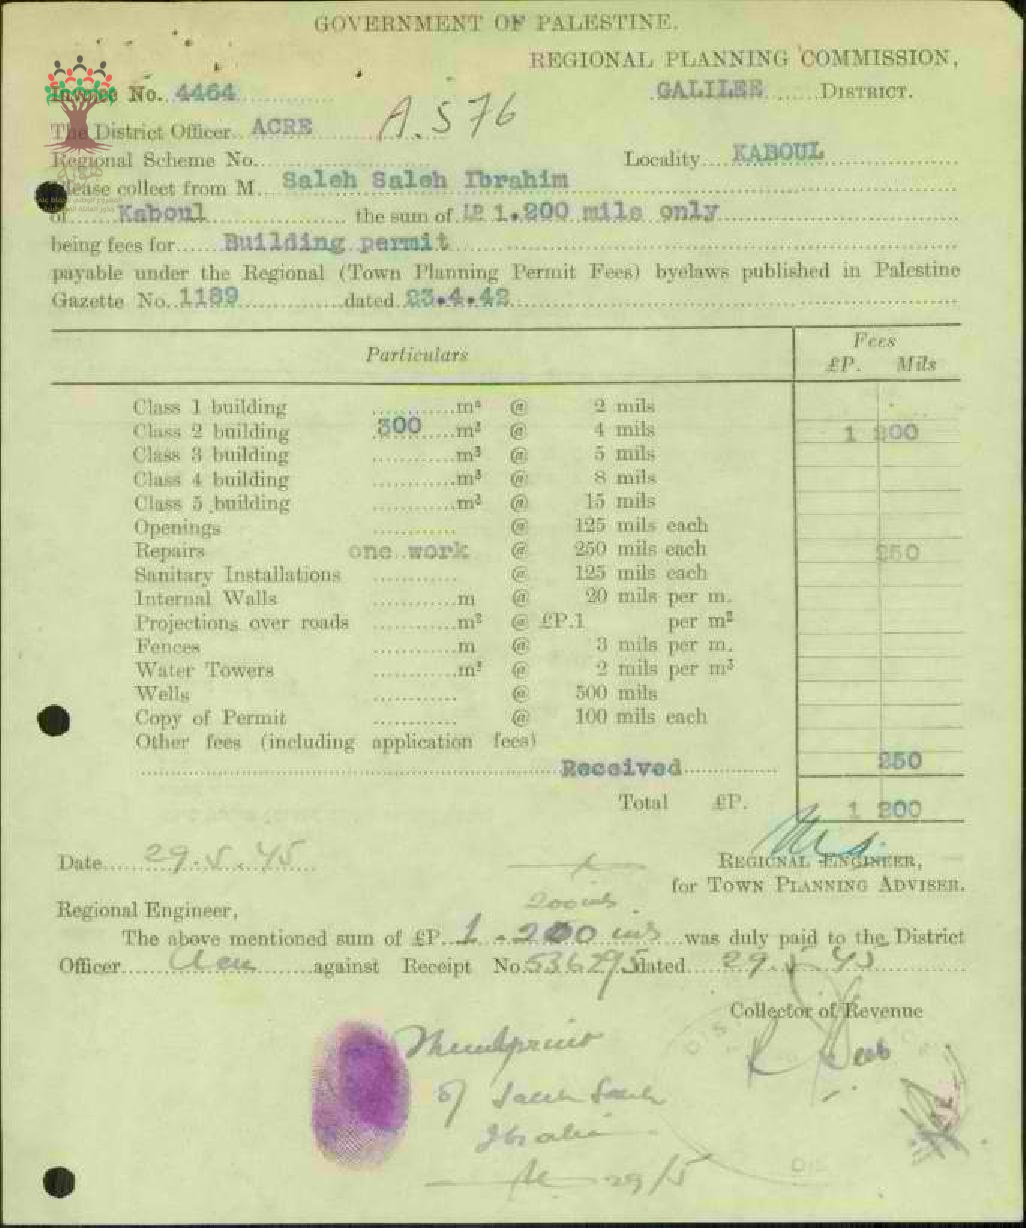 GOVERNMENT OF PALESTINE.
REGIONAL PLANNING COMMISSION,
Invoice No. 4464 GALILEE DISTRICT.
The District Officer ACRE A.576
Regional Scheme No. Locality KABOUL
Please collect from M. Saleh Saleh Ibrahim
of Kaboul the sum of LP 1.200 mils only
being fees for Building permit
payable under the Regional (Town Planning Permit Fees) byelaws published in Palestine
Gazette No. 1189 dated 23.4.42
Particulars Fees
£P. Mils
Class 1 building m³ @ 2 mils
Class 2 building 300 m³ @ 4 mils 1 200
Class 3 building m³ @ 5 mils
Class 4 building m³ @ 8 mils
Class 5 building m³ @ 15 mils
Openings @ 125 mils each
Repairs one work @ 250 mils each 250
Sanitary Installations @ 125 mils each
Internal Walls m @ 20 mils per m.
Projections over roads m² @ £P.1 per m²
Fences m @ 3 mils per m.
Water Towers m³ @ 2 mils per m³
Wells @ 500 mils
Copy of Permit @ 100 mils each
Other fees (including application fees)
Received 250
Total £P. 1 200
Date 29.5.45 REGIONAL ENGINEER,
for TOWN PLANNING ADVISER.
Regional Engineer,
The above mentioned sum of £P. 1.200 was duly paid to the District
Officer Acre against Receipt No. 536295 dated 29.5.45
Collector of Revenue
Thumbprint
of Saleh Saleh
Ibrahim
29/5